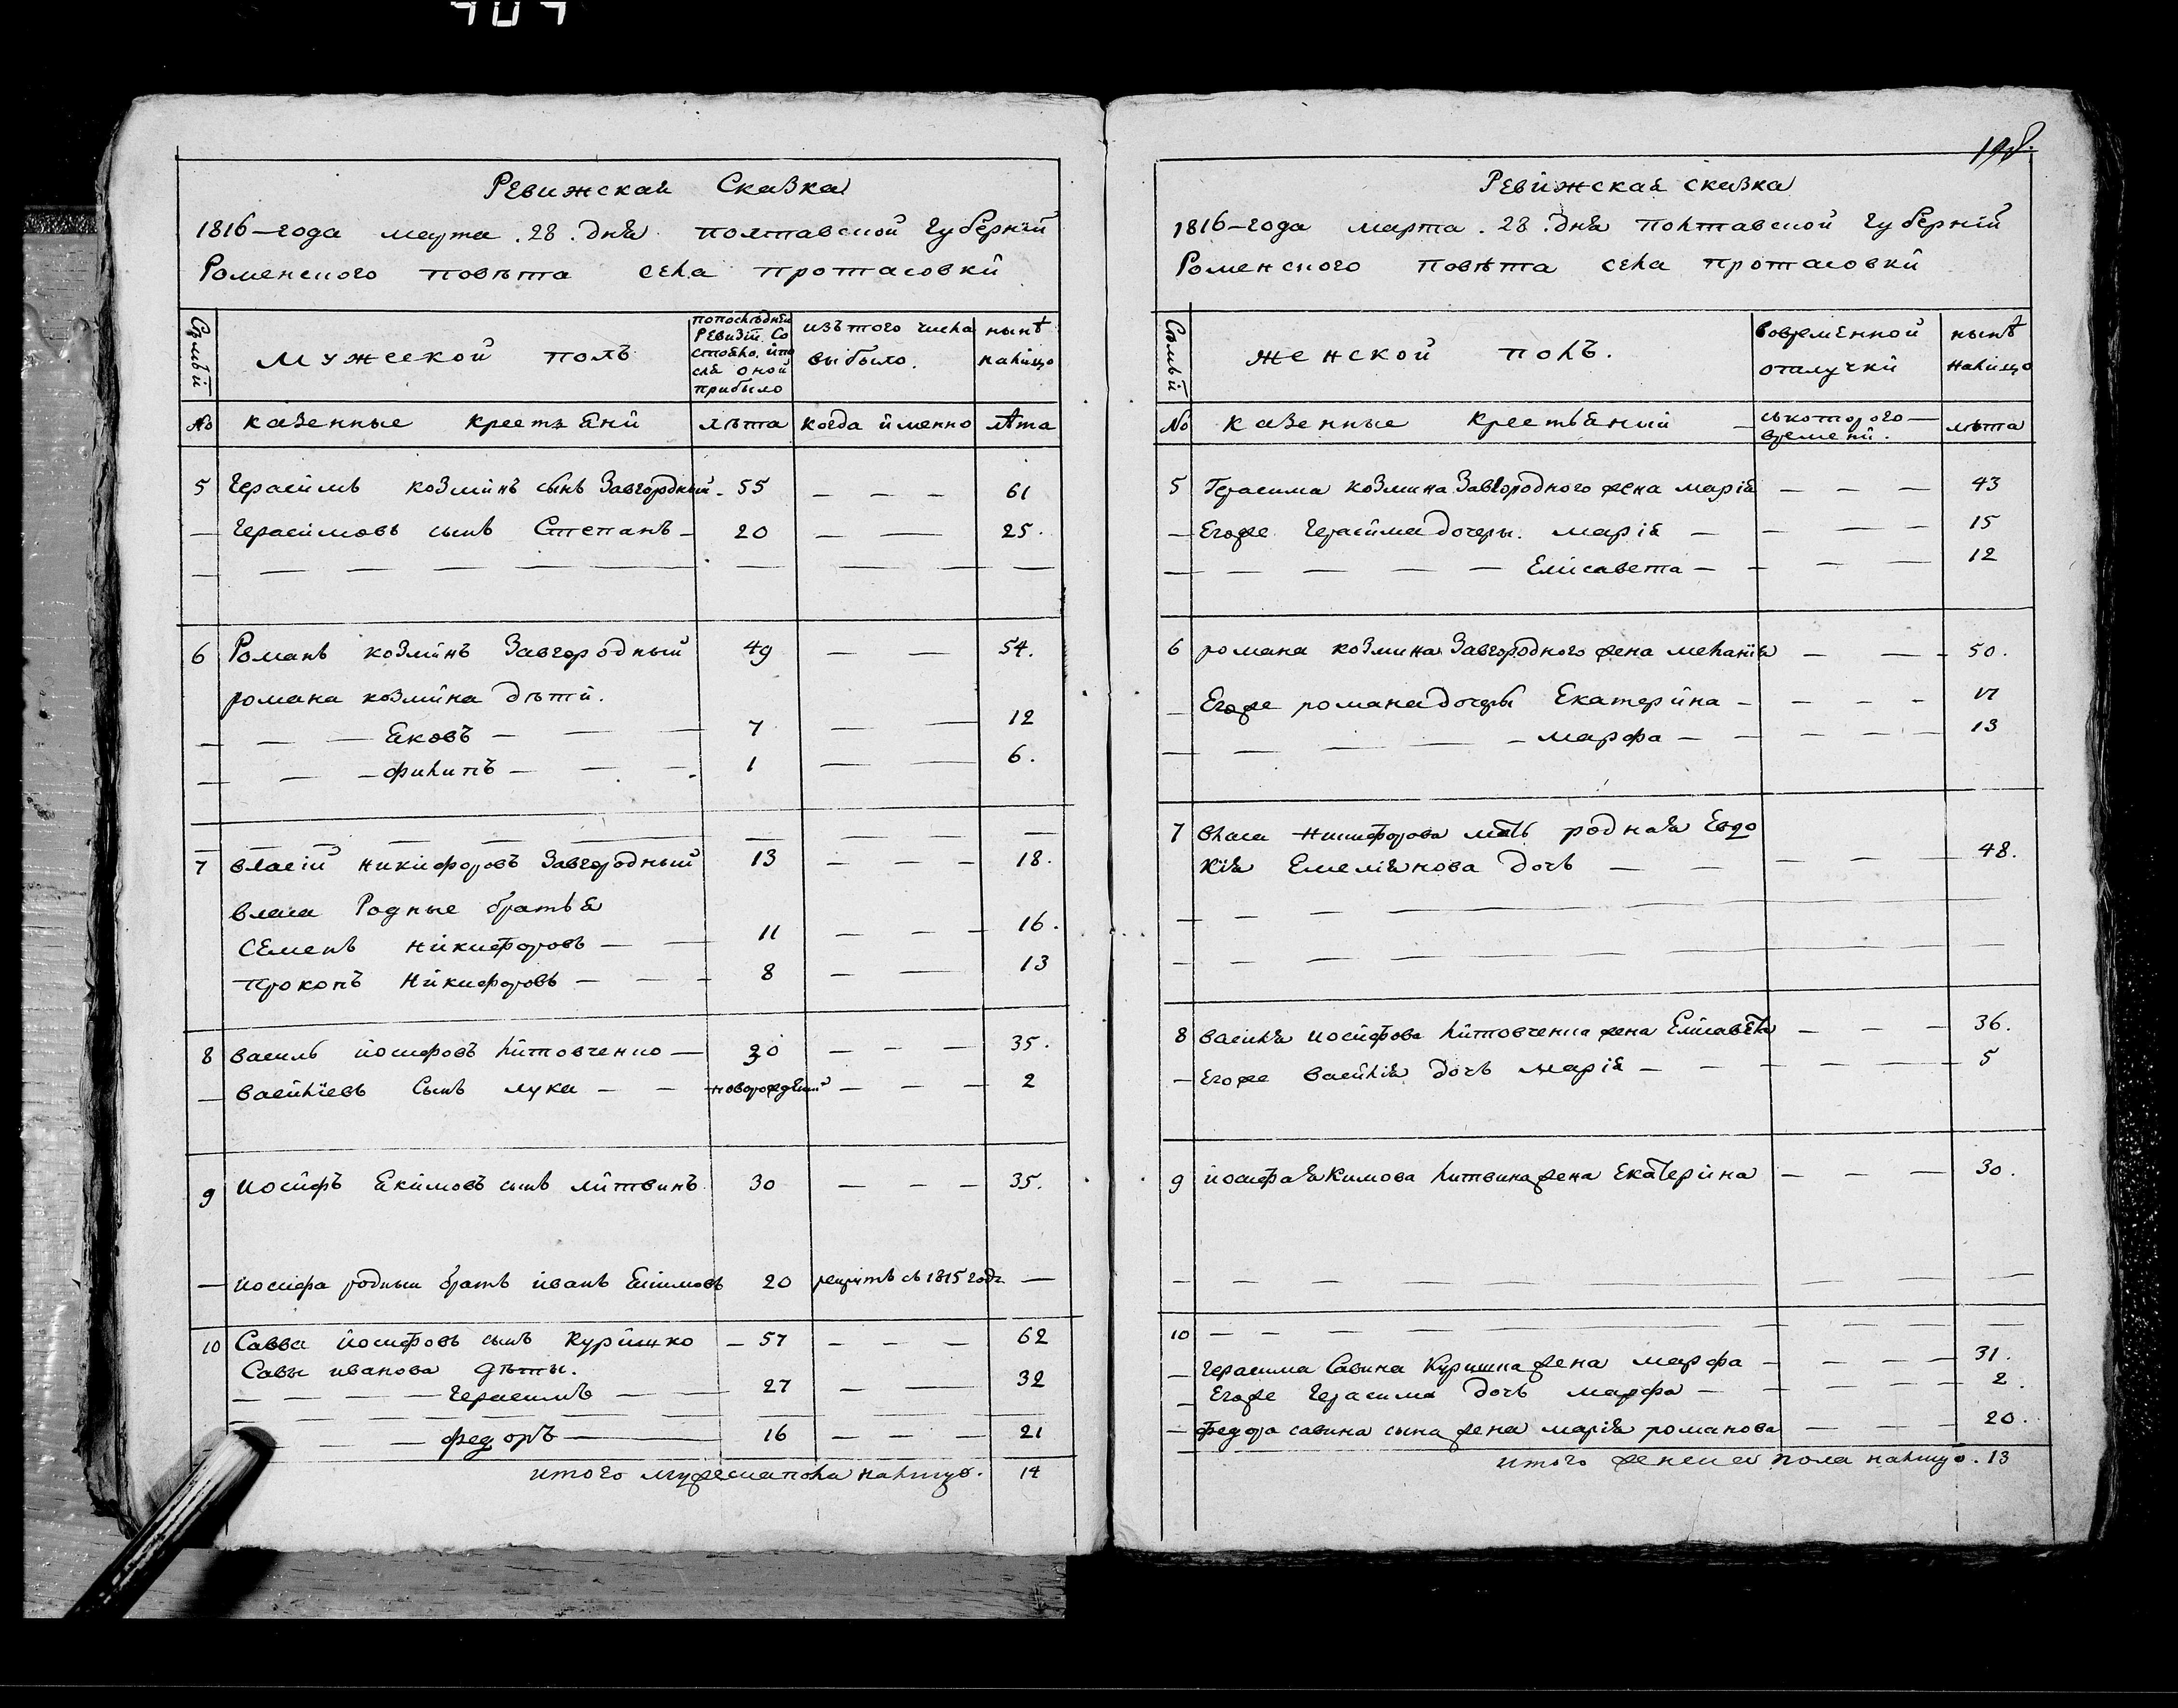 Ревижская Сказка
1816-года марта .28. дня полтавской губерній
Роменского повѣта села протасовки
Семьи
мужеской полъ
попослѣдней Ревизіи Состояло, и после оной прибыло
изъ того числа выбыло.
нынѣ налицо
№ казенные крестьяни лѣта когда именно лѣта
5 Герасимъ козминъ сынъ Завгородный - 55 — — — 61
— Герасимовъ сынъ Степанъ — 20 — — 25.
6 Романъ козминъ Завгородный 49 — — 54.
романа козмина дѣти.
— — — Яковъ — — — 7 — — 12
— — — филипъ — — — 1 — — 6.
7 власій никифоровъ Завгородный 13 — — — 18.
власа Родные братья
Семенъ никифоровъ — — 11 — — — 16.
прокопъ Никифоровъ — — — 8 — — 13
8 василь іосифовъ литовченко — 30 — — — 35.
— василіевъ Сынъ лука — — новорожденій — — — 2
9 Іосифъ Якимовъ сынъ литвинъ 30 — — — 35.
— іосифа родный братъ иванъ Якимовъ 20 рекрутъ съ 1815 года —
10 Савва іосифовъ сынъ Куришко — 57 — — — 62
Савы иванова дѣты.
— — — — Герасимъ — — 27 — — 32
— федоръ — 16 — — — 21
итого мужеска пола налицо. 14
Ревижская сказка
1816-года марта .28. дня полтавской губерній
Роменского повѣта села протасовки
Семьи
женской полъ.
вовременной отлучки
нынѣ налицо
№ казенные крестьяний — съкоторого времени. лѣта
5 Герасима козмина Завгородного жена марія — — — 43
— Егоже Герасима дочеры. марія — — — — 15
— — — — — Елисавета — — — — 12
6 романа козмина Завгородного жена меланія — — — 50.
— Егоже романа дочеры Екатерина — — — — 17
— — — — — марфа — — — — — 13
7 власа Никифорова мать родная Евдо
кія Емеліянова дочь — — — — — 48.
8 василя іосифова литовченка жена Елисавета — — — 36.
— Егоже василія дочь марія — — — — — 5
9 іосифа якимова литвина жена Екатерина — — — 30.
10 — — — — — — —
— Герасима Савина Куришка жена марфа — — — — 31.
— Егоже Герасима дочь марфа — — — — — 2.
— Федора савина сына жена марія романова — — — 20.
итого женска пола налицо. 13